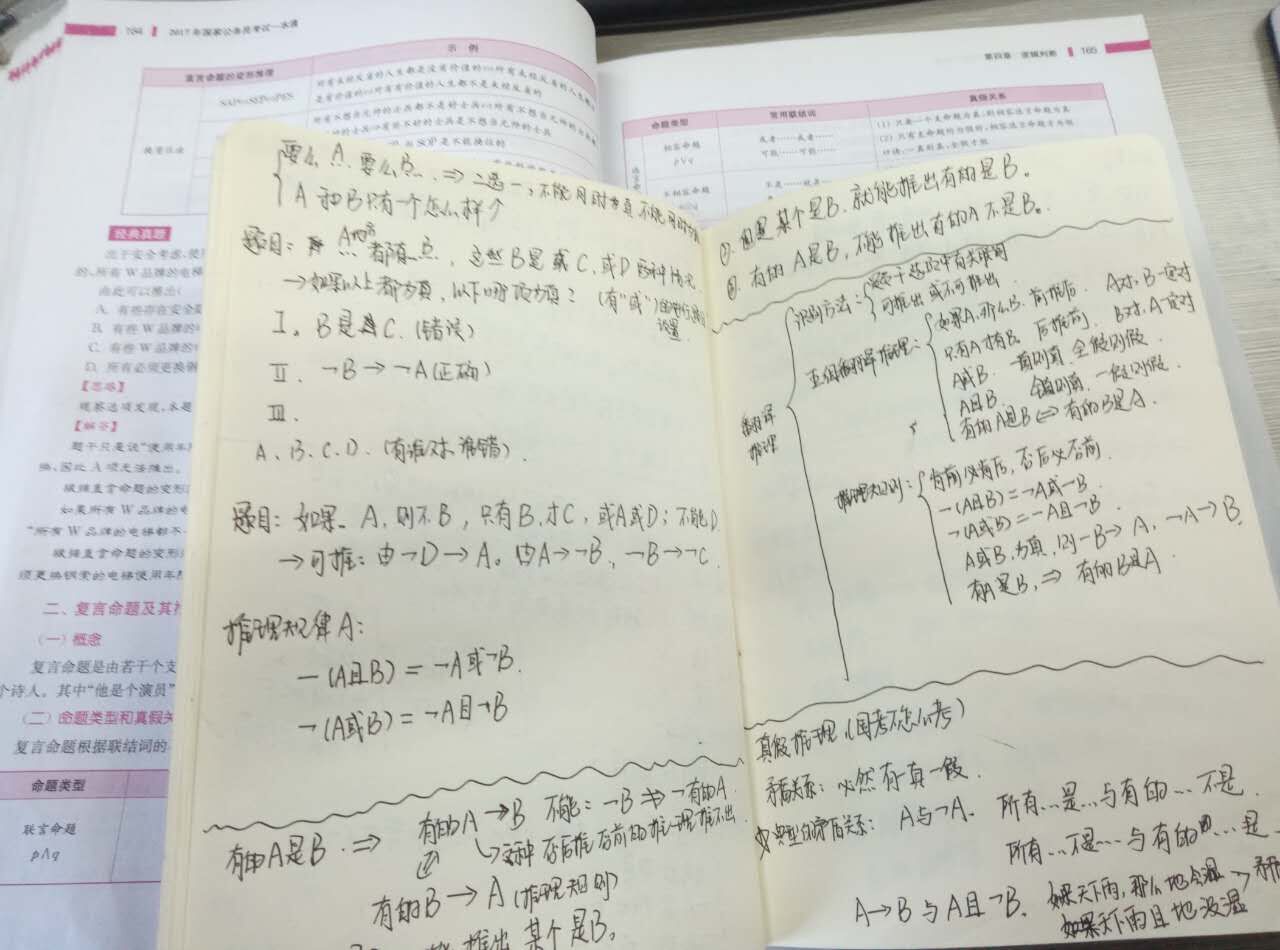 164 2017年国家公务员考试一本通
示 例
直言命题的变形推理
SAP⇔SEP⇔PES
所有未经反省的人生都是没有价值的⇔所有未经反省的人生都不
是有价值的⇔所有有价值的人生都不是未经反省的
所有不想当元帅的士兵都不是好士兵⇔所有不想当元帅的士兵
是不能换位的
经典真题
出于安全考虑,使
的,所有W品牌的电梯
由此可以推出(
A. 有些存在安全隐
B. 有些W品牌的
C. 有些W品牌的
D. 所有必须更换钢
【思路】
观察选项发现,本题
【解答】
题干只是说“使用年
换,因此A项无法推出。
根据直言命题的变形
如果所有W品牌的电
“所有W品牌的电梯都不
根据直言命题的变形
须更换钢索的电梯使用年
二、复言命题及其
(一)概念
复言命题是由若干个支
个诗人。其中“他是个演员”
(二)命题类型和真假关
复言命题根据联结词的
命题类型
联言命题
p∧q
第四章 逻辑判断 165
命题类型 常用联结词 真假关系
相容命题
p∨q
或者……或者……
可能……可能……
(1)只要一个支命题为真,则相容选言命题为真
(2)只有支命题均为假时,相容选言命题才为假
口诀:一真则真,全假才假
不相容命题
要么A,要么B ⇒ 二选一,不能同时为真,不能同时为
A和B只有一个怎么样个
题目:A的 都有B,这些B是或C,或D两种情况
→如果以上都为真,以下哪项为真?(有“或”)
设置
Ⅰ. B是C.(错误)
Ⅱ. ¬B→¬A(正确)
Ⅲ.
A、B、C、D.(有谁对,谁错).
题目:如果A,则不B,只有B,才C,或A或D;不能D
→可推:由¬D→A。由A→¬B,¬B→¬C
推理规律A:
¬(A且B)=¬A或¬B.
¬(A或B)=¬A且¬B
有的A是B.⇒ 有的A→B 不能:¬B⇏¬有的A
这种否后推否前的推理推不出
有的B→A(推理规则)
推出某个是B。
①.由某个是B,就能推出有的是B。
②.有的A是B,不能推出有的A不是B。
翻译推理
识别方法:
题干选项中有关联词
可推出或不可推出
五组翻译推理:
如果A,那么B. 前推后. A对,B一定对
只有A才有B. 后推前. B对,A一定对
A或B. 一真则真,全假则假
A且B. 全真则真,一假则假.
有的A是B⇔有的B是A.
推理规则:
肯前必肯后,否后必否前.
¬(A且B)=¬A或¬B.
¬(A或B)=¬A且¬B
A或B,为真,则¬B→A,¬A→B
有A是B,⇒有的B是A
真假推理(国考不怎么考)
矛盾关系:必然有一真一假.
典型的矛盾关系: A与¬A. 所有…是…与有的…不是.
所有…不是…与有的…是
A→B与A且¬B. 如果天下雨,那么地会湿
如果天下雨且地没湿